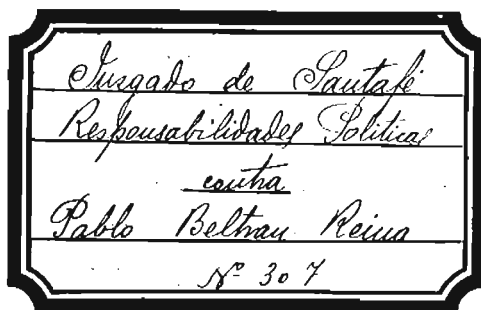 Jusgado de Santafé
Responsabilidades Politicas
contra
Pablo Beltran Reina
Nº 307